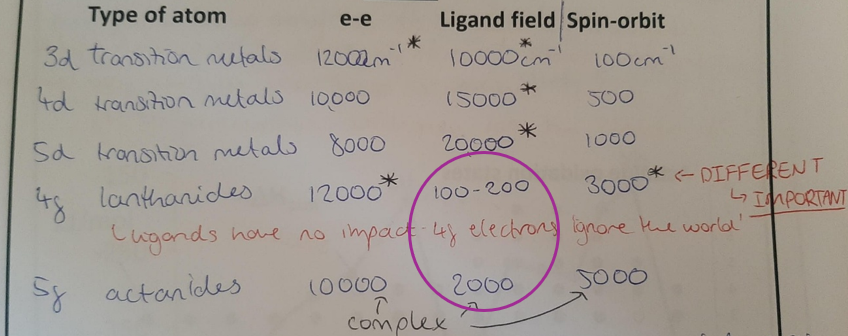 Type of atom e-e Ligand field Spin-orbit
3d transition metals 12000cm⁻¹* 10000*cm⁻¹ 100cm⁻¹
4d transition metals 10,000 15000* 500
5d transition metals 8000 20000* 1000
4f lanthanides 12000* 100-200 3000* ← DIFFERENT
↳ IMPORTANT
ligands have no impact - 4f electrons 'ignore the world'
5f actanides 10000 2000 5000
complex